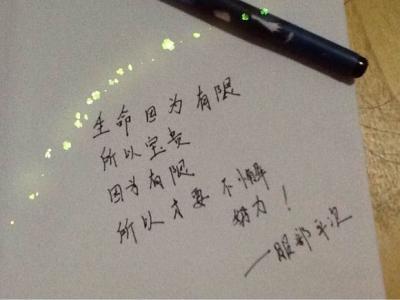 生命因为有限
所以宝贵
因为有限
所以才要不懈
努力！
—服部平次